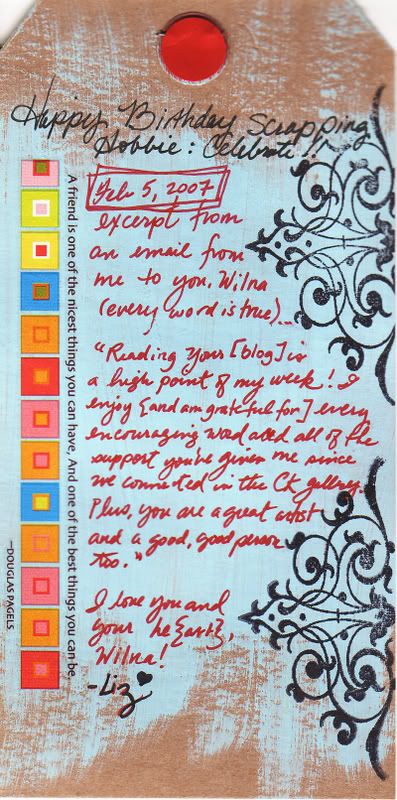 Happy Birthday Scrapping
Hobbie: Celebrate!!
Feb 5, 2007
excerpt from
an email from
me to you, Wilna
(every word is true)...
"Reading your [blog] is
a high point of my week! I
enjoy {and am grateful for} every
encouraging word and all of the
support you've given me since
we connected in the CK gallery.
Plus, you are a great artist
and a good, good person
too."
I love you and
your he{art},
Wilna!
-Liz
A friend is one of the nicest things you can have, And one of the best things you can be.
—DOUGLAS PAGELS